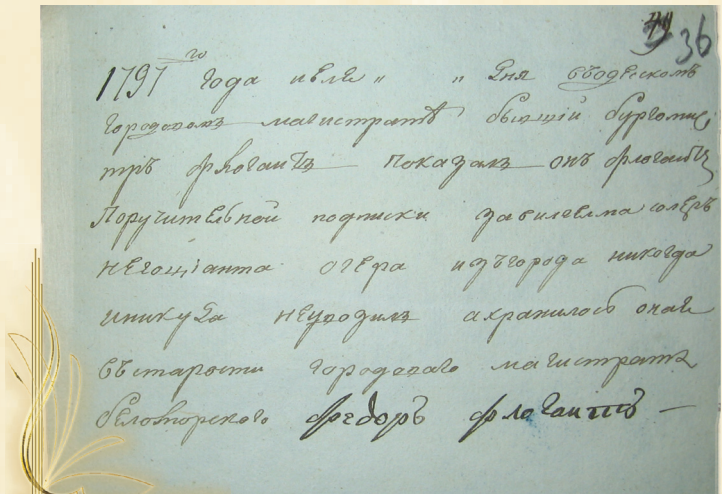 36
1797го года июля " " дня въ одескомъ
городовомъ магистратѣ бывшій бургомис
тръ Флогаитъ показалъ онъ Флогаитъ
Поручительной подписки за вилгелма
негоціанта отера изъ города никогда
и никуда не уходилъ а хранилось оная
въ старости городового магистрата
Федоръ Флогаитъ —